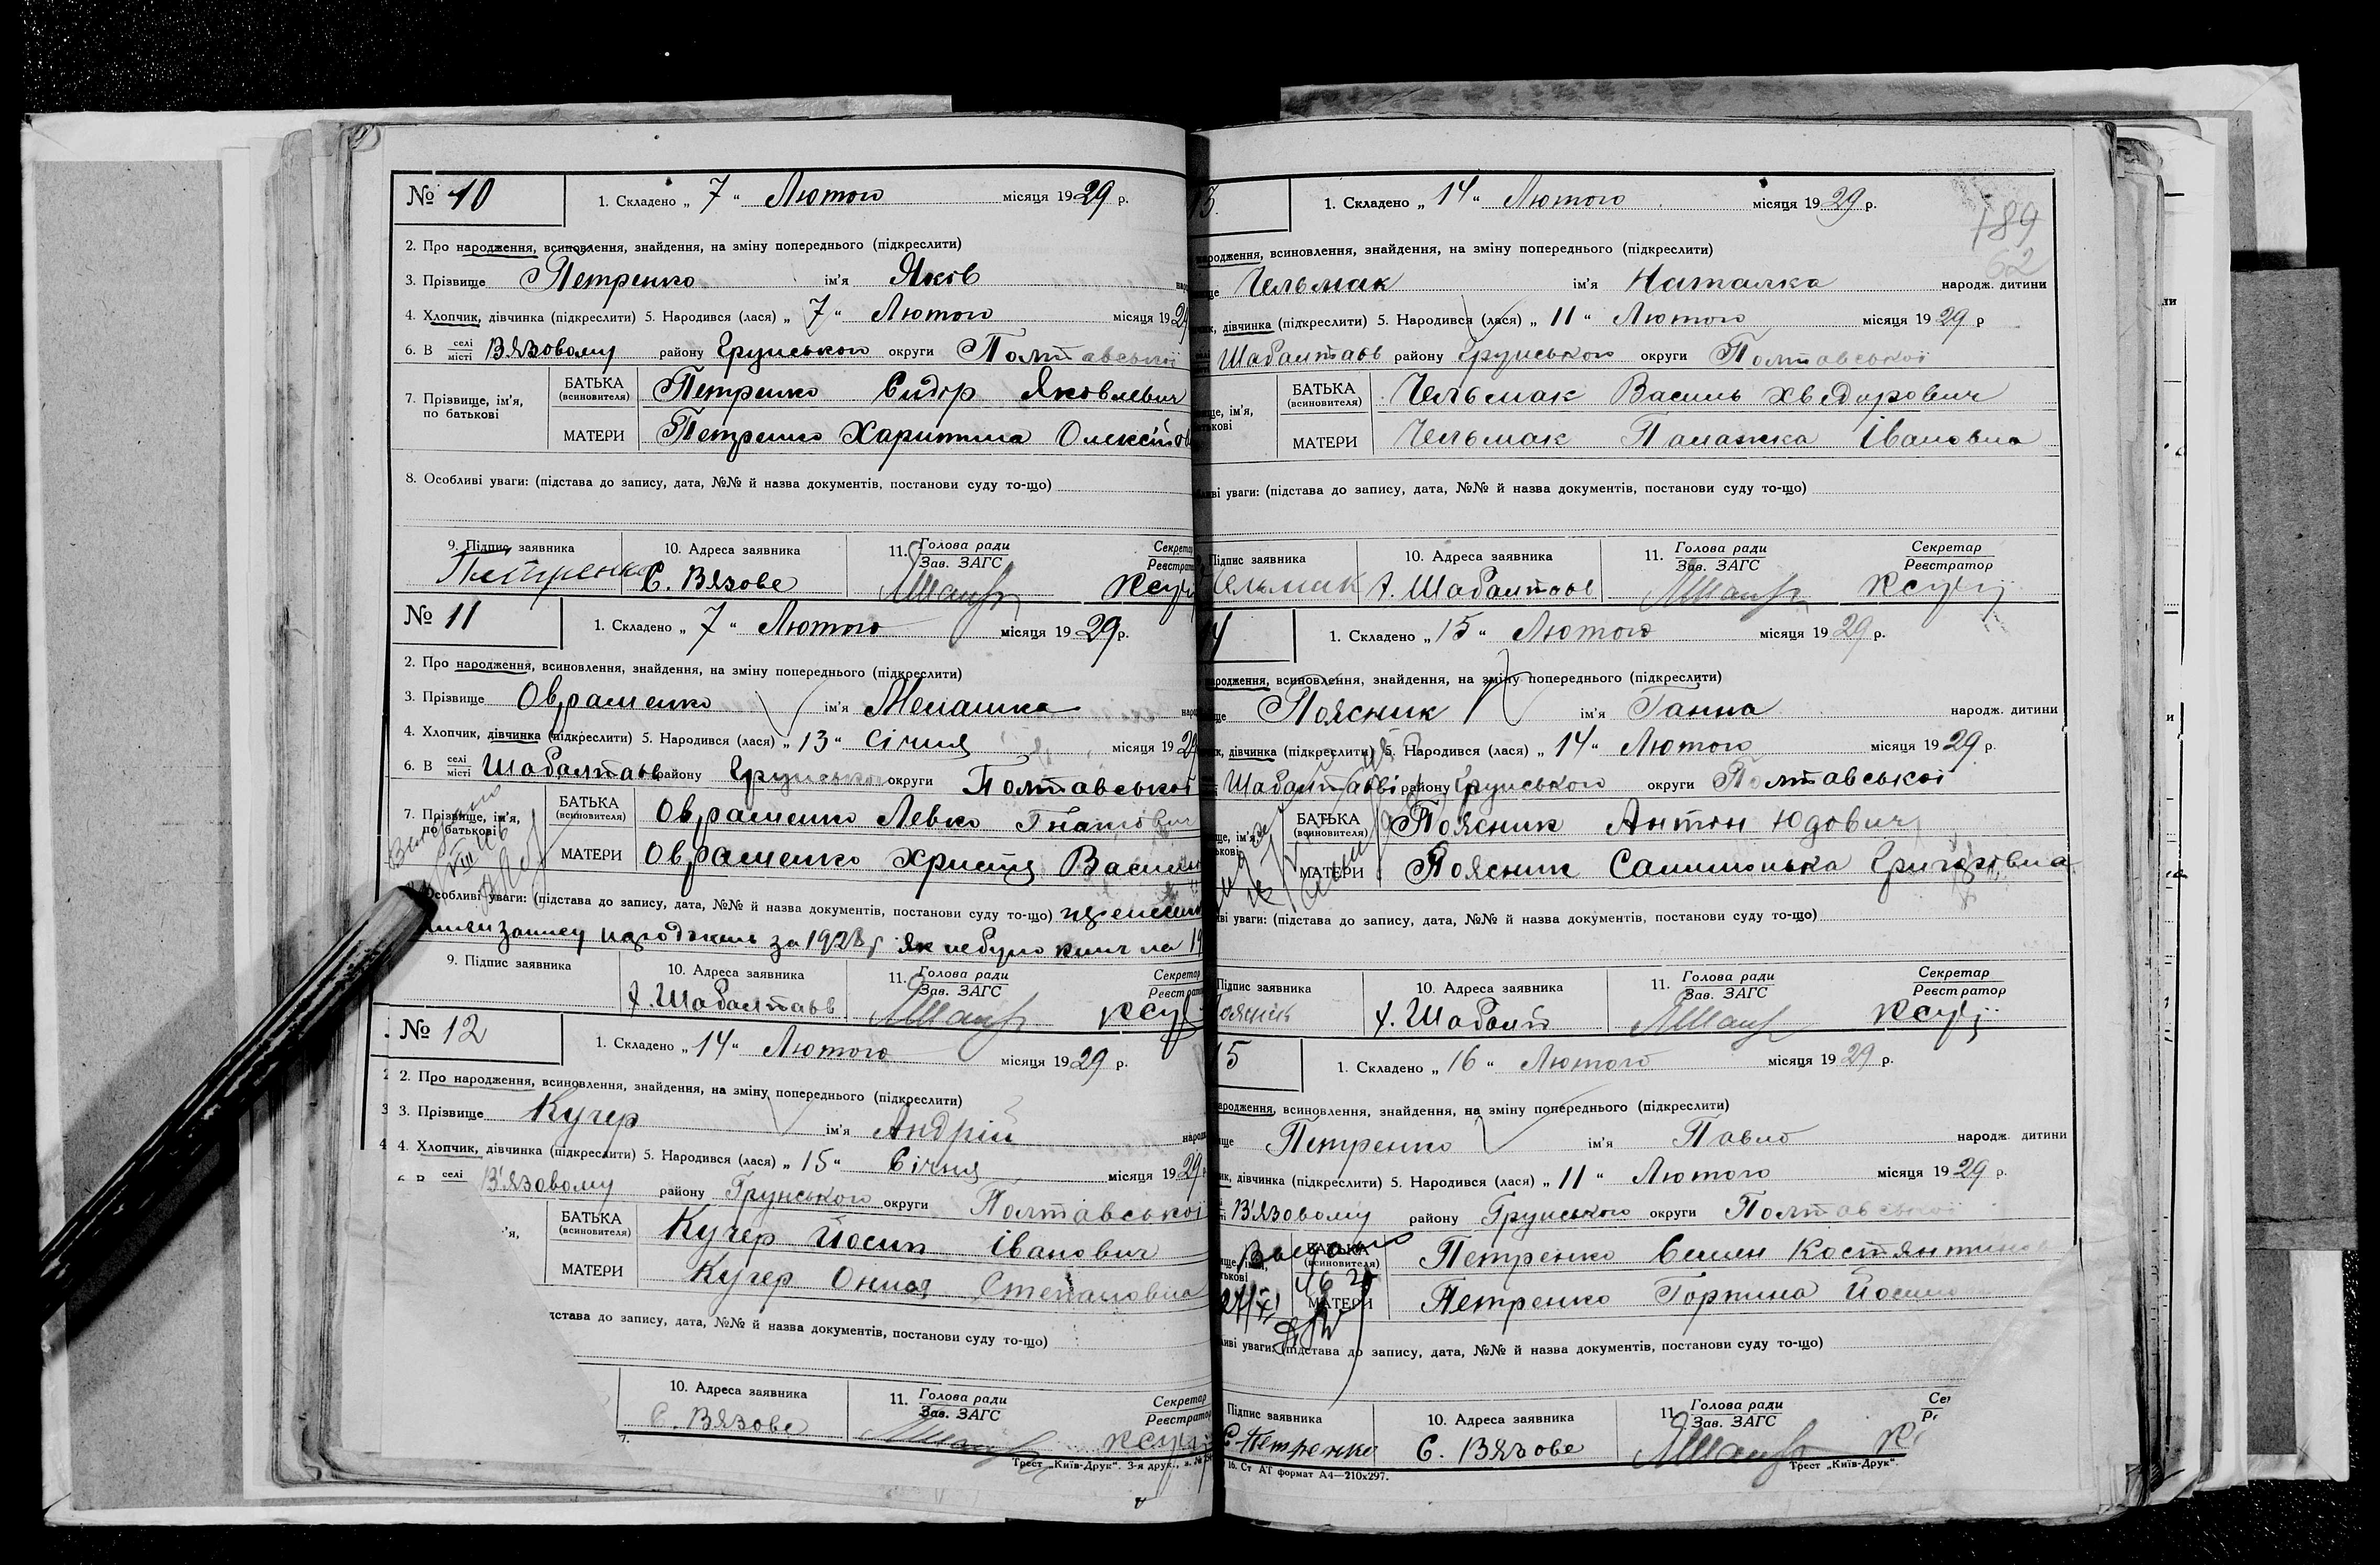 № 10
1. Складено „ 7 “ Лютого місяця 1929 р.
2. Про народження, всиновлення, знайдення, на зміну попереднього (підкреслити)
3. Прізвище Петренко ім'я Яков
4. Хлопчик, дівчинка (підкреслити) 5. Народився (лася) „ 7 “ Лютого місяця 1929
6. В селі місті Вязовому району Грунського округи Полтавської
7. Прізвище, ім'я, по батькові
БАТЬКА (всиновителя) Петренко Сидор Яковлевич
МАТЕРИ Петренко Харитина Олексіїов
8. Особливі уваги: (підстава до запису, дата, №№ й назва документів, постанови суду то-що)
9. Підпис заявника 10. Адреса заявника 11. Голова ради Зав. ЗАГС Секретар Реєстратор
Петренко С. Вязове
№ 11
1. Складено „ 7 “ Лютого місяця 1929 р.
2. Про народження, всиновлення, знайдення, на зміну попереднього (підкреслити)
3. Прізвище Овраменко ім'я Мелашка
4. Хлопчик, дівчинка (підкреслити) 5. Народився (лася) „ 13 “ Січня місяця 1929
6. В селі місті Шабалтаєв району Грунського округи Полтавської
7. Прізвище, ім'я, по батькові
БАТЬКА (всиновителя) Овраменко Левко Гнатович
МАТЕРИ Овраменко Христя Васил
Особливі уваги: (підстава до запису, дата, №№ й назва документів, постанови суду то-що)
запису народжень за 1928 р як небуло книг на 19
9. Підпис заявника 10. Адреса заявника 11. Голова ради Зав. ЗАГС Секретар Реєстратор
х. Шабалтаєв
№ 12
1. Складено „ 14 “ Лютого місяця 1929 р.
2. Про народження, всиновлення, знайдення, на зміну попереднього (підкреслити)
3. Прізвище Кучер ім'я Андрій
4. Хлопчик, дівчинка (підкреслити) 5. Народився (лася) „ 15 “ Січня місяця 1929 р
селі В'язовому району Грунського округи Полтавської
БАТЬКА (всиновителя) Кучер Йосип Іванович
МАТЕРИ Кучер Онися Степановна
дстава до запису, дата, №№ й назва документів, постанови суду то-що)
10. Адреса заявника 11. Голова ради Зав. ЗАГС Секретар Реєстратор
С. Вязове
Трест „Київ-Друк“. 3-я друк.,
13.
1. Складено „ 14 “ Лютого місяця 1929 р.
189
62
народження, всиновлення, знайдення, на зміну попереднього (підкреслити)
Чельмак ім'я Наталка народж. дитини
дівчинка (підкреслити) 5. Народився (лася) „ 11 “ Лютого місяця 1929 р
Шабалтаєв району Грунського округи Полтавської
БАТЬКА (всиновителя) Чельмак Василь Хведорович
МАТЕРИ Чельмак Палажка Івановна
уваги: (підстава до запису, дата, №№ й назва документів, постанови суду то-що)
Підпис заявника 10. Адреса заявника 11. Голова ради Зав. ЗАГС Секретар Реєстратор
х. Шабалтаєв
4
1. Складено „ 15 “ Лютого місяця 1929 р.
народження, всиновлення, знайдення, на зміну попереднього (підкреслити)
Поясник ім'я Ганна народж. дитини
дівчинка (підкреслити) 5. Народився (лася) „ 14 “ Лютого місяця 1929 р.
Шабалтаєві району Грунського округи Полтавської
БАТЬКА (всиновителя) Поясник Антон Юдович
МАТЕРИ Поясник Саломонька Григоровна
уваги: (підстава до запису, дата, №№ й назва документів, постанови суду то-що)
Підпис заявника 10. Адреса заявника 11. Голова ради Зав. ЗАГС Секретар Реєстратор
Поясник х. Шабалт
15
1. Складено „ 16 “ Лютого місяця 1929 р.
народження, всиновлення, знайдення, на зміну попереднього (підкреслити)
Петренко ім'я Павло народж. дитини
дівчинка (підкреслити) 5. Народився (лася) „ 11 “ Лютого місяця 1929 р.
В'язовому району Грунського округи Полтавської
БАТЬКА (всиновителя) Петренко Семен Костянтино
МАТЕРИ Петренко Горпина Йосипо
уваги: (підстава до запису, дата, №№ й назва документів, постанови суду то-що)
Підпис заявника 10. Адреса заявника 11. Голова ради Зав. ЗАГС
С Петренко С. Вязове
16. Ст АТ формат А4—210х297. Трест „Київ-Друк“.